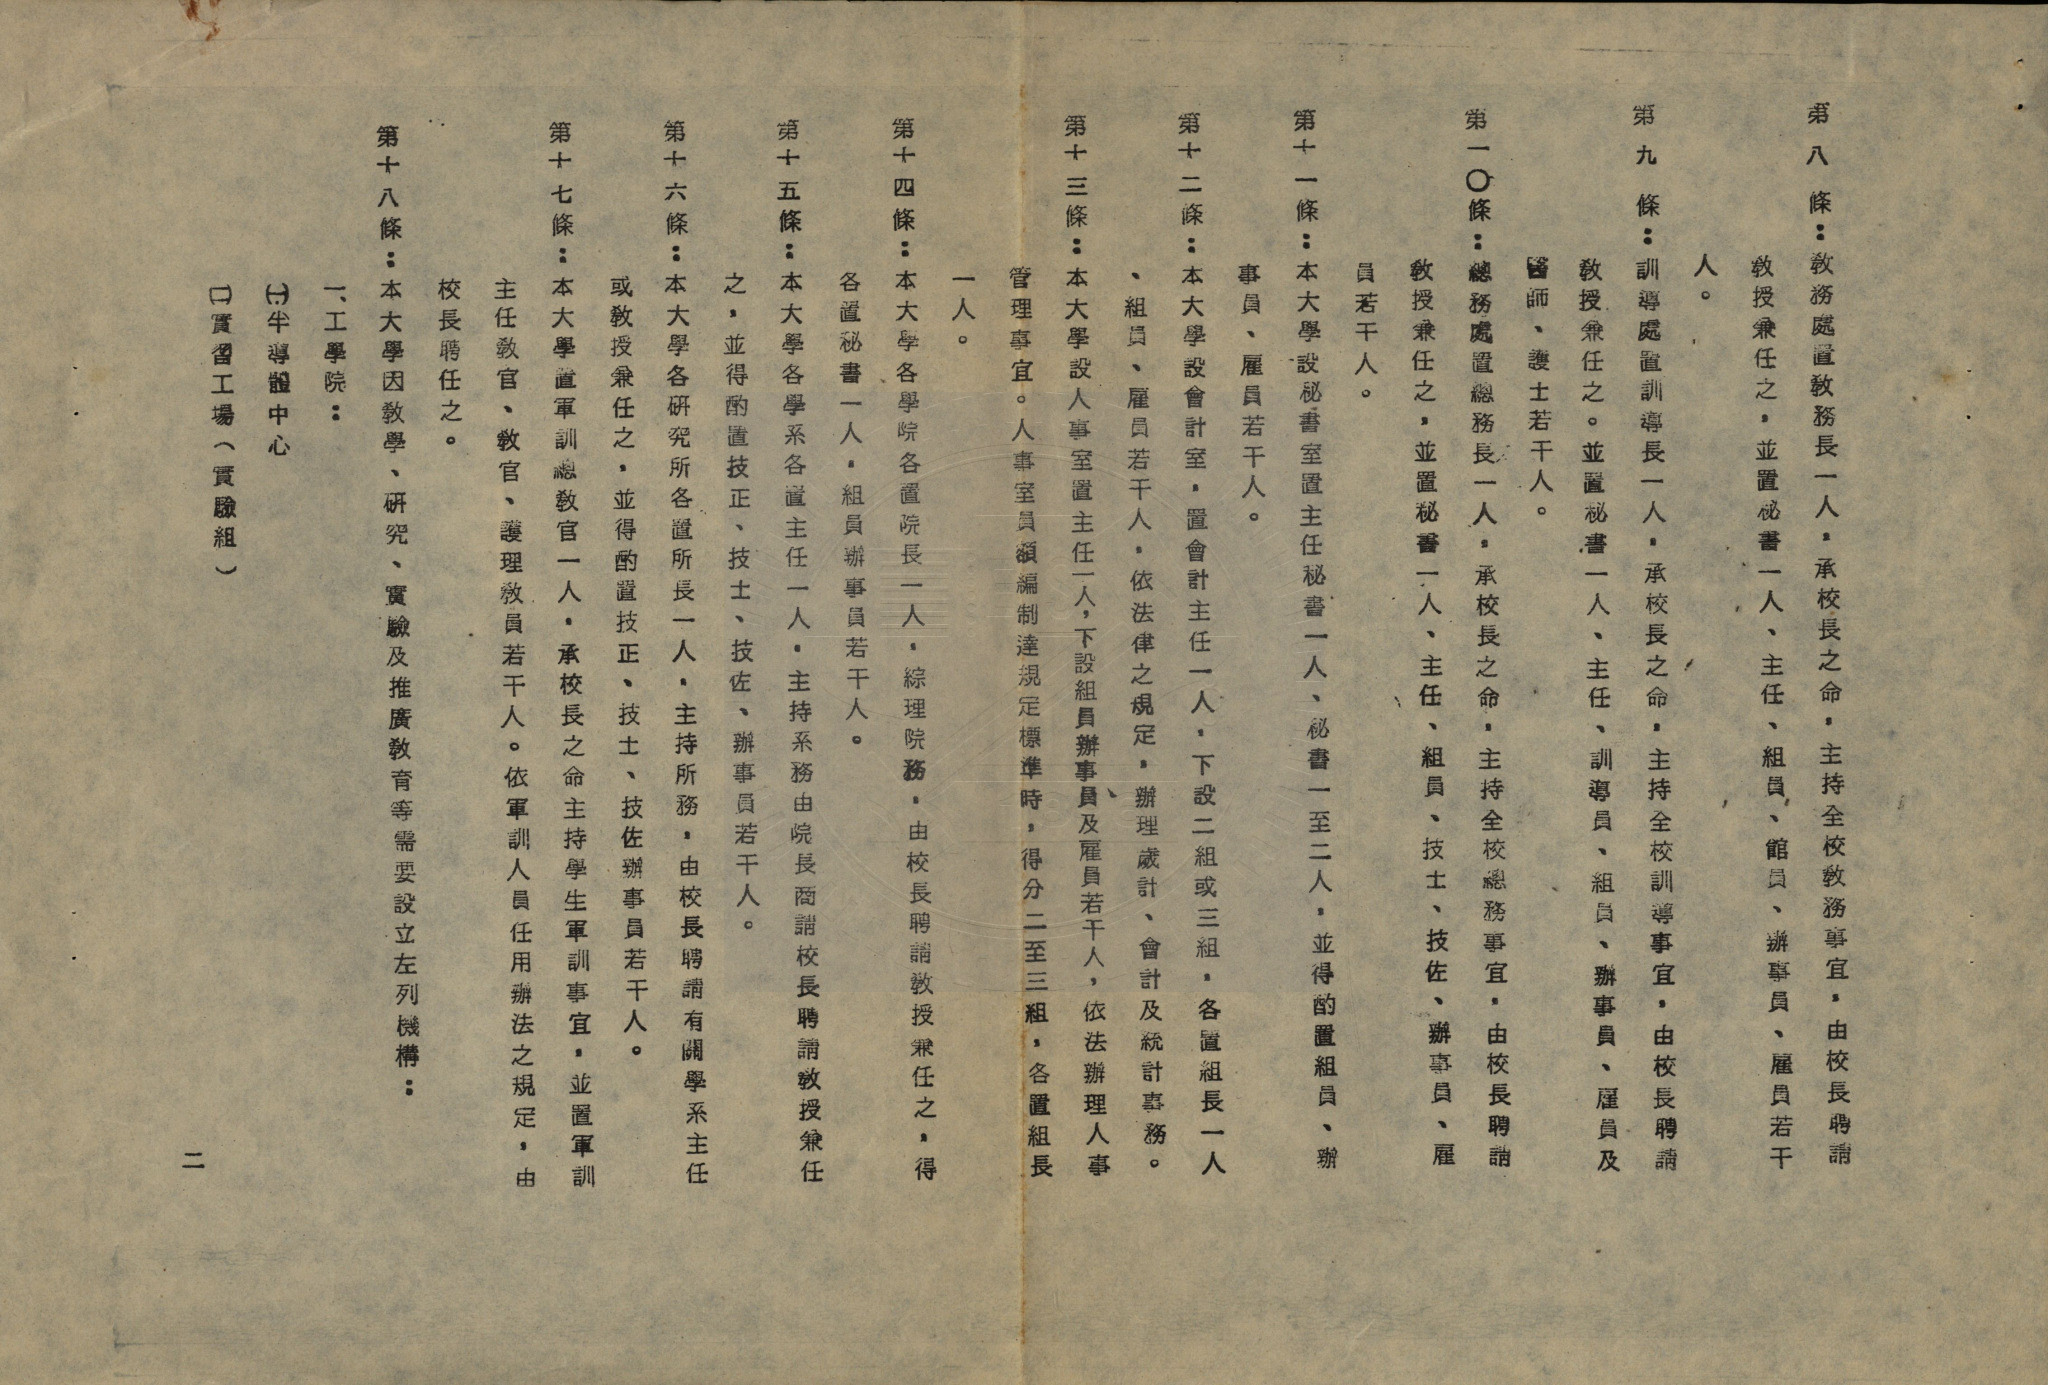 第八條：教務處置教務長一人，承校長之命，主持全校教務事宜，由校長聘請
教授兼任之，並置秘書一人、主任、組員、館員、辦事員、雇員若干
人。
第九條：訓導處置訓導長一人，承校長之命，主持全校訓導事宜，由校長聘請
教授兼任之。並置秘書一人、主任、訓導員、組員、辦事員、雇員及
醫師、護士若干人。
第一〇條：總務處置總務長一人，承校長之命，主持全校總務事宜，由校長聘請
教授兼任之，並置秘書一人、主任、組員、技士、技佐、辦事員、雇
員若干人。
第十一條：本大學設秘書室置主任秘書一人、秘書一至二人，並得酌置組員、辦
事員、雇員若干人。
第十二條：本大學設會計室，置會計主任一人，下設二組或三組，各置組長一人
、組員、雇員若干人，依法律之規定，辦理歲計、會計及統計事務。
第十三條：本大學設人事室置主任一人，下設組員辦事員及雇員若干人，依法辦理人事
管理事宜。人事室員額編制達規定標準時，得分二至三組，各置組長
一人。
第十四條：本大學各學院各置院長一人，綜理院務，由校長聘請教授兼任之，得
各置秘書一人，組員辦事員若干人。
第十五條：本大學各學系各置主任一人，主持系務由院長商請校長聘請教授兼任
之，並得酌置技正、技士、技佐、辦事員若干人。
第十六條：本大學各研究所各置所長一人，主持所務，由校長聘請有關學系主任
或教授兼任之，並得酌置技正、技士、技佐辦事員若干人。
第十七條：本大學置軍訓總教官一人，承校長之命主持學生軍訓事宜，並置軍訓
主任教官、教官、護理教員若干人。依軍訓人員任用辦法之規定，由
校長聘任之。
第十八條：本大學因教學、研究、實驗及推廣教育等需要設立左列機構：
一、工學院：
㈠半導體中心
㈡實習工場（實驗組）
二